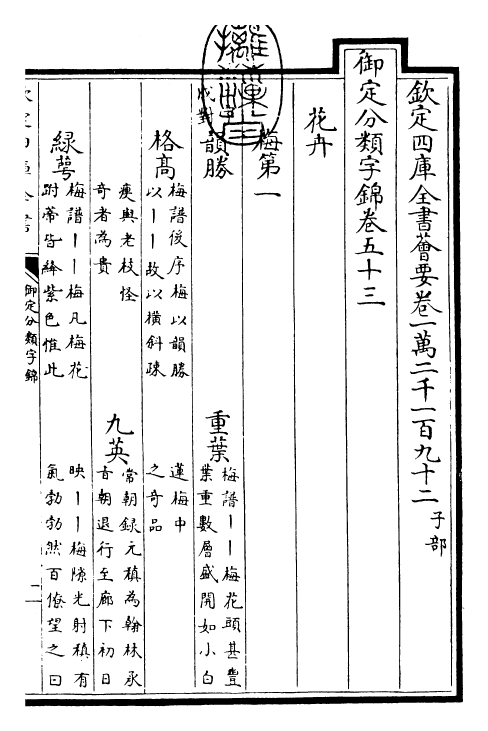 欽定四庫全書薈要卷一萬二千一百九十二 子部
御定分類字錦卷五十三
花卉
梅第一
成對
韻勝
重葉
梅譜丨丨梅花頭甚豐
葉重數層盛開如小白
蓮梅中
之奇品
格高
梅譜後序梅以韻勝
以丨丨故以橫斜疎
瘦與老枝怪
奇者為貴
九英
常朝録元稹為翰林承
㫖朝退行至廊下初日
映丨丨梅隙光射稹有
氣勃勃然百僚望之曰
緑萼
梅譜丨丨梅凡梅花
跗蒂皆絳紫色惟此
御定分類字錦
一